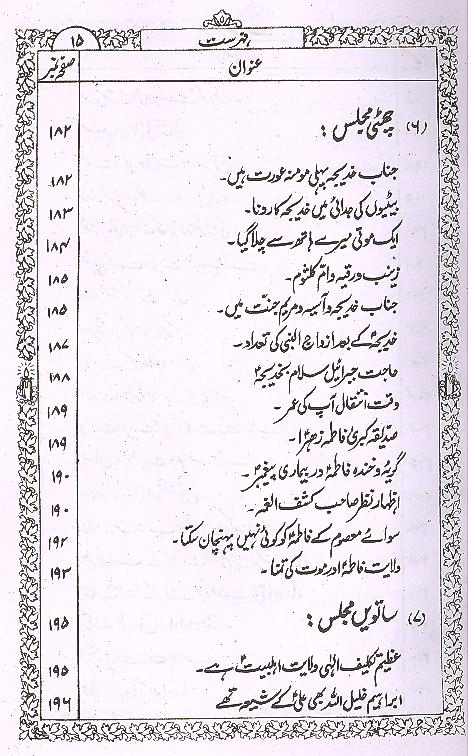 فہرست ۱۵
عنوان صفحہ نمبر
(۶) چھٹی مجلس : ۱۸۲
جناب خدیجہ پہلی مومنہ عورت ہیں۔ ۱۸۲
بیٹیوں کی جدائی میں خدیجہ کا رونا۔ ۱۸۳
ایک موتی میرے ہاتھ سے چلا گیا۔ ۱۸۴
زینب و رقیہ و ام کلثوم۔ ۱۸۵
جناب خدیجہ و آسیہ و مریم جنت میں۔ ۱۸۵
خدیجہؑ کے بعد ازواج النبی کی تعداد۔ ۱۸۷
حاجت جبرائیل سلام بخدیجہؑ ۱۸۸
وقت انتقال آپ کی عمر۔ ۱۸۹
صدیقہ کبریٰ فاطمہ زہراؑ۔ ۱۸۹
گریہ و خندہ فاطمہؑ در بیماری پیغمبرؐ۔ ۱۹۰
اظہار نظر صاحب کشف الغمہ۔ ۱۹۰
سوائے معصوم کے فاطمہؑ کو کوئی نہیں پہچان سکتا۔ ۱۹۲
ولایت فاطمہؑ اور موت کی تمنا۔ ۱۹۳
(۷) ساتویں مجلس : ۱۹۵
عظیم تکلیف الٰہی ولایت اہلبیتؑ ہے۔ ۱۹۵
ابراہیم خلیل اللہ بھی علیؑ کے شیعہ تھے ۱۹۶